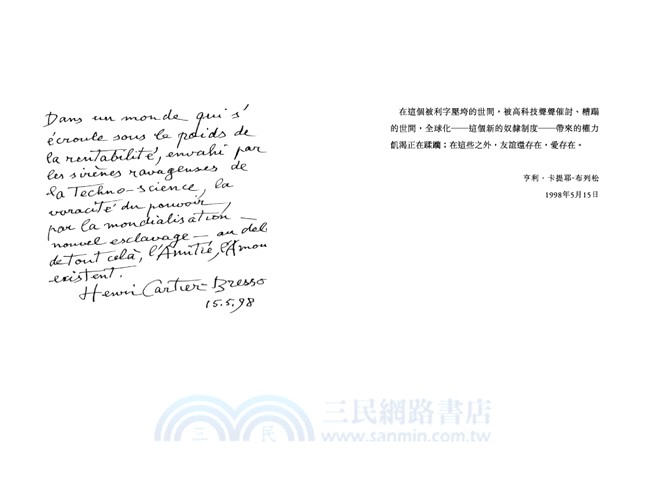 Dans un monde qui s'
écroule sous le poids de
la rentabilité, envahi par
les sirènes ravageuses de
la Techno-science, la
voracité du pouvoir,
par la mondialisation –
nouvel esclavage – au del
de tout cela, l'Amitié, l'Amou
existent.
Henri Cartier-Bresso
15.5.98
在這個被利字壓垮的世間，被高科技聲聲催討、糟蹋
的世間，全球化──這個新的奴隸制度──帶來的權力
飢渴正在蹂躪；在這些之外，友誼還存在，愛存在。
亨利．卡提耶-布列松
1998年5月15日
三民網路書店
三 民
www.sanmin.com.tw